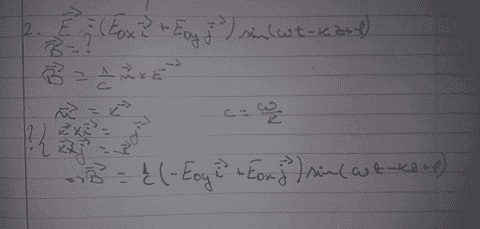 2. E⃗ = (E₀ₓ i⃗ + E₀ᵧ j⃗) sin(ωt - kz + φ)
B⃗ = ?
B⃗ = 1/c u⃗ × E⃗
u⃗ = k⃗ c = ω/k
?{ k⃗ × i⃗ = j⃗
k⃗ × j⃗ = -i⃗
=> B⃗ = 1/c (-E₀ᵧ i⃗ + E₀ₓ j⃗) sin(ωt - kz + φ)